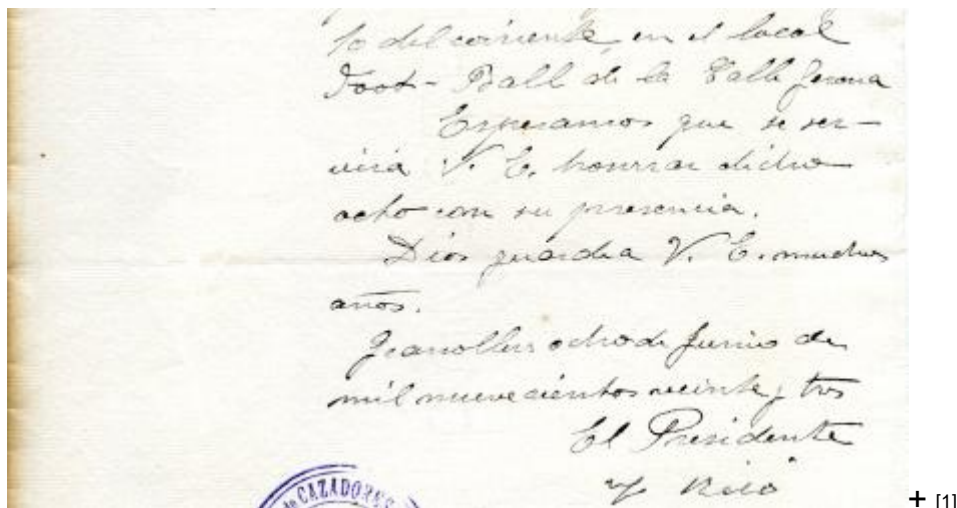 10 del corriente en el local
Foot-Ball de la Calle Gerona
Esperamos que se ser-
virá V. E. honrrar dicho
acto con su presencia.
Dios guarde a V. E. muchos
años.
Granollers ocho de Junio de
mil nuevecientos veinte y tres
El Presidente
de CAZADORES
+ [1]